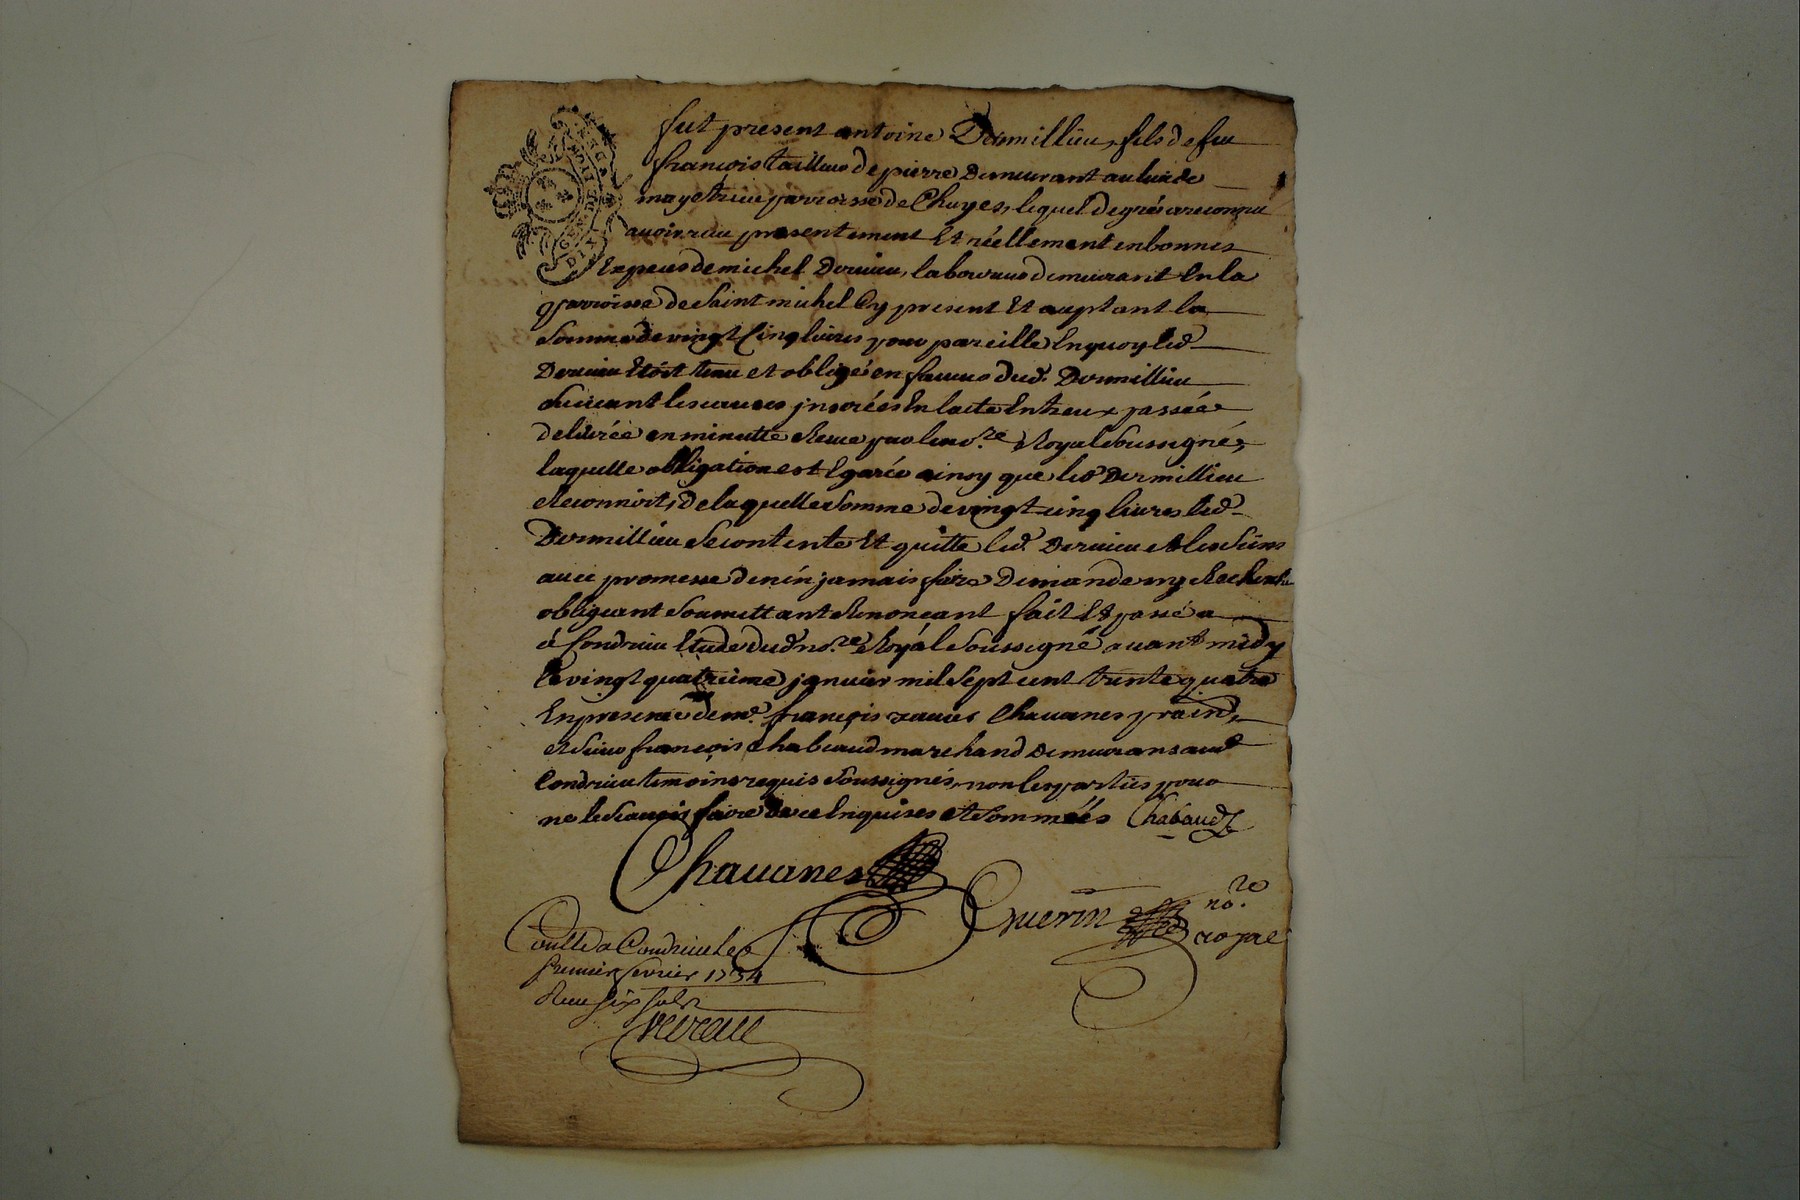 fut present antoine Dermillieu, fils de feu
françois tailleur de pierre Demeurant au lieu de
mayetrieu parroisse de Chuyes, lequel de gré a reconnu
avoir reçu presentement Et réellement en bonnes
Especes de michel Dervieu, laboureur demeurant En la
parroisse de Saint michel Cy present Et acceptant la
Somme de vingt Cinq livres pour pareille En quoy led.
Dervieu Etoit tenu et obligé en faveur dud. Dermillieu
Suivant les causes jnserées En lacte Entreux passée
delivrée en minutte Receue par led no.re Royal Soussigné,
laquelle obligation est Egarée ainsy que led Dermillieu
Reconnoit, de laquelle Somme de vingt cinq livres led.
Dermillieu Se contente Et quitte led. Dervieu et les Siens
avec promesse de nen jamais faire Demande ny Recherche
obligeant Soumettant Renonçant fait Et passé a
à Condrieu Etude dud no.re Royal Soussigné avant midy
Le vingt quatrieme janvier mil Sept cent trente quatre
En presence de me. françois xavier Chavanes
et Sieur françois Chabeaud marchand Demeurans aud
Condrieu temoins requis Soussignés, non les parties pour
ne le Scavoir faire de ce Enquises et Sommées Chabaud
Chavanes
Guerin no.re
royal
Con.llé a Condrieu le
premier fevrier 1734
Receu six sols